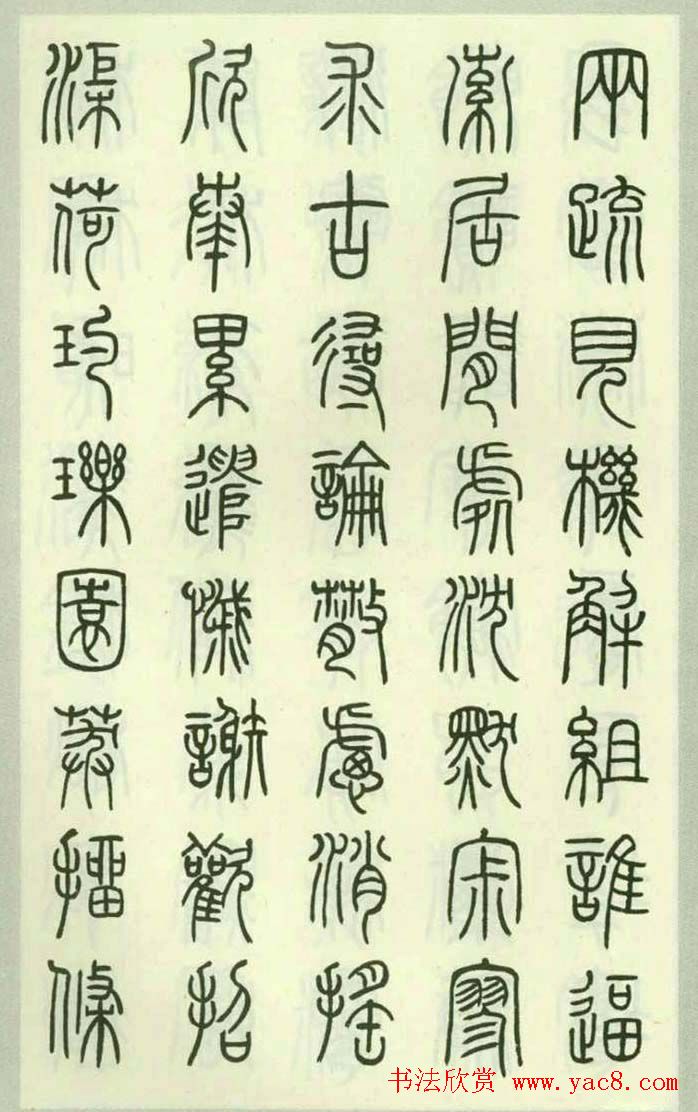 兩疏見機解組誰逼
索居閒處沈默寂寥
求古尋論散慮逍遙
欣奏累遣慼謝歡招
渠荷的歷園莽抽條
书法欣赏 www.yac8.com